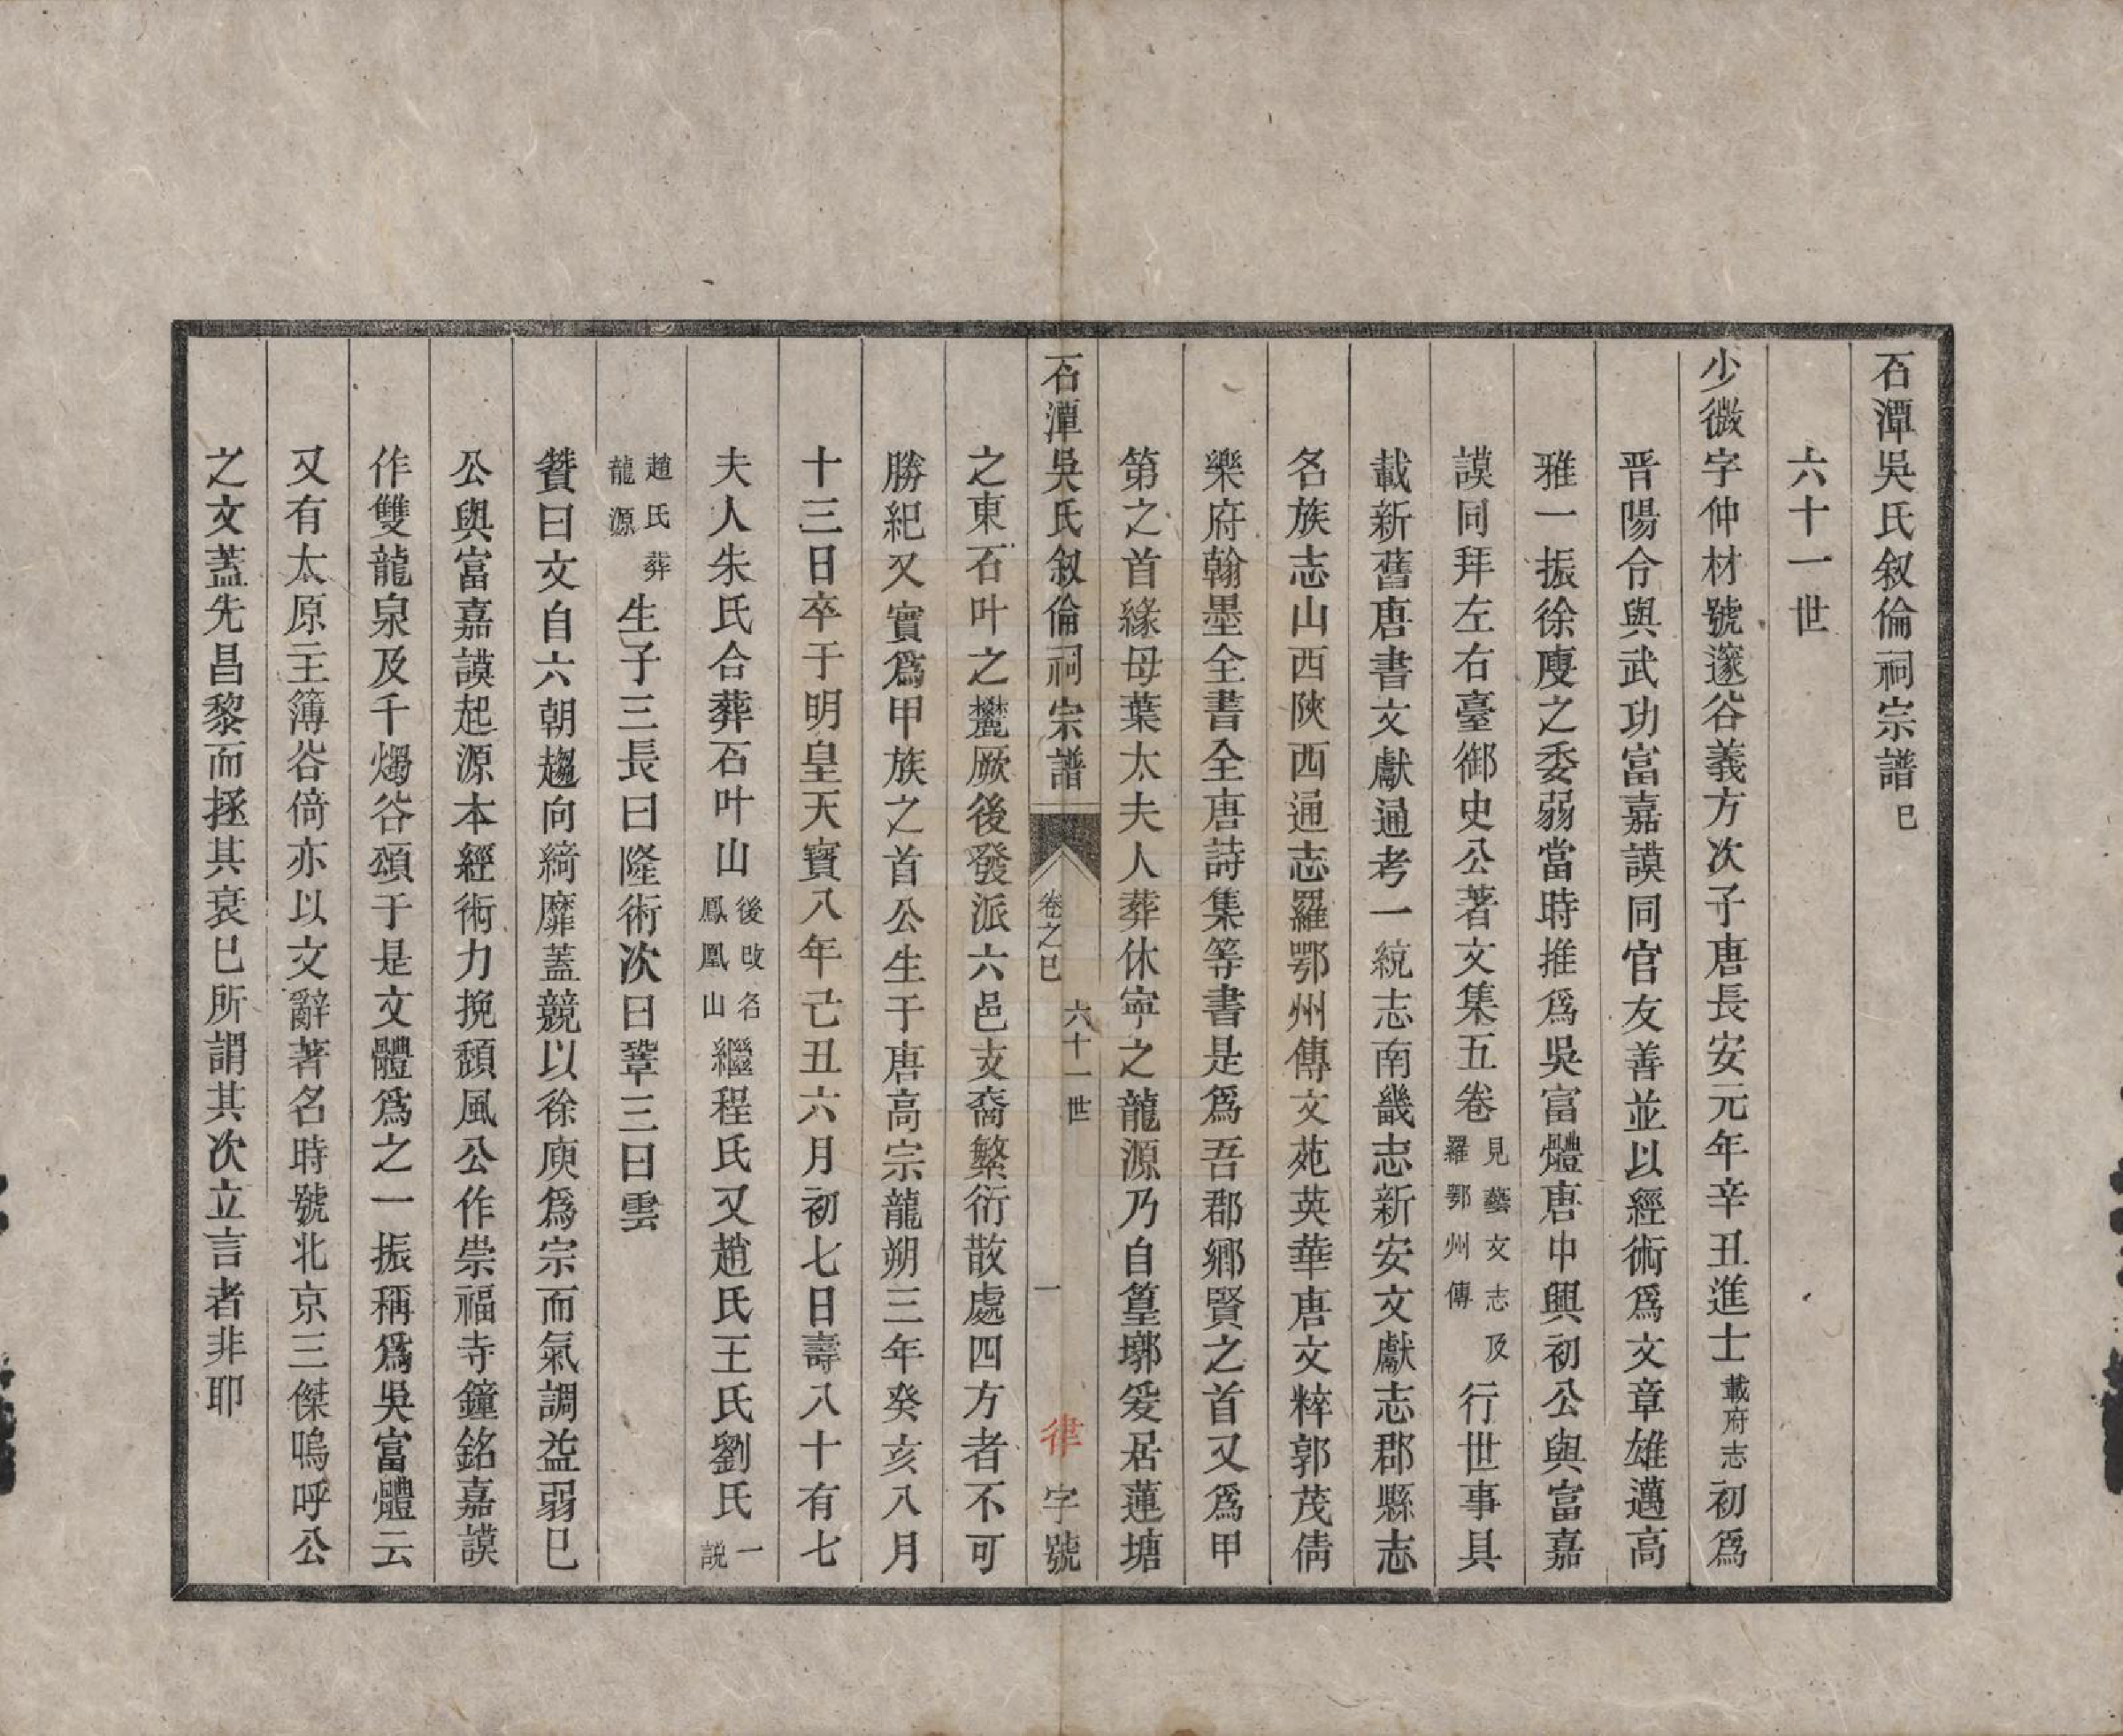 石潭吳氏叙倫祠宗譜 巳
六十一世
少微字仲材號邃谷義方次子唐長安元年辛丑進士載府志初爲
晋陽令與武功富嘉謨同官友善並以經術爲文章雄邁高
雅一振徐廋之委弱當時推爲吳富體唐中興初公與富嘉
謨同拜左右臺御史公著文集五卷見藝文志及羅鄂州傳行世事具
載新舊唐書文獻通考一統志南畿志新安文獻志郡縣志
名族志山西陝西通志羅鄂州傳文苑英華唐文粹郭茂倩
樂府翰墨全書全唐詩集等書是爲吾郡鄉賢之首又爲甲
第之首緣母葉太夫人葬休寧之龍源乃自篁墩爰居蓮塘
石潭吳氏叙倫祠宗譜 卷之巳 六十一世 一 律字號
之東石叶之麓厥後發派六邑支裔繁衍散處四方者不可
勝紀又實爲甲族之首公生于唐高宗龍朔三年癸亥八月
十三日卒于明皇天寶八年己丑六月初七日壽八十有七
夫人朱氏合葬石叶山後改名鳳凰山繼程氏又趙氏王氏劉氏一說
趙氏葬龍源生子三長曰隆術次曰鞏三曰雲
贊曰文自六朝趨向綺靡蓋競以徐庾爲宗而氣調益弱巳
公與富嘉謨起源本經術力挽頹風公作崇福寺鐘銘嘉謨
作雙龍泉及千燭谷頌于是文體爲之一振稱爲吳富體云
又有太原主簿谷倚亦以文辭著名時號北京三傑嗚呼公
之文蓋先昌黎而拯其衰巳所謂其次立言者非耶